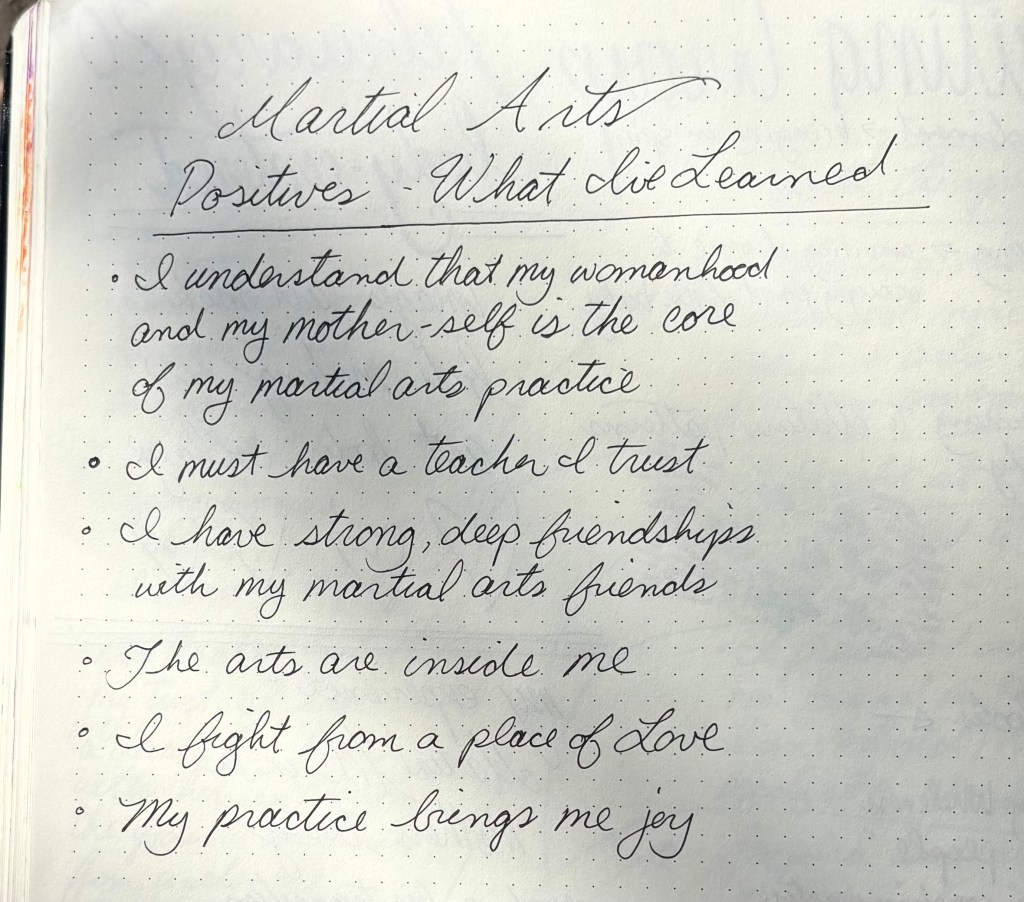 Martial Arts
Positives - What I've Learned
• I understand that my womanhood
and my mother-self is the core
of my martial arts practice
• I must have a teacher I trust
• I have strong, deep friendships
with my martial arts friends
• The arts are inside me
• I fight from a place of Love
• My practice brings me joy